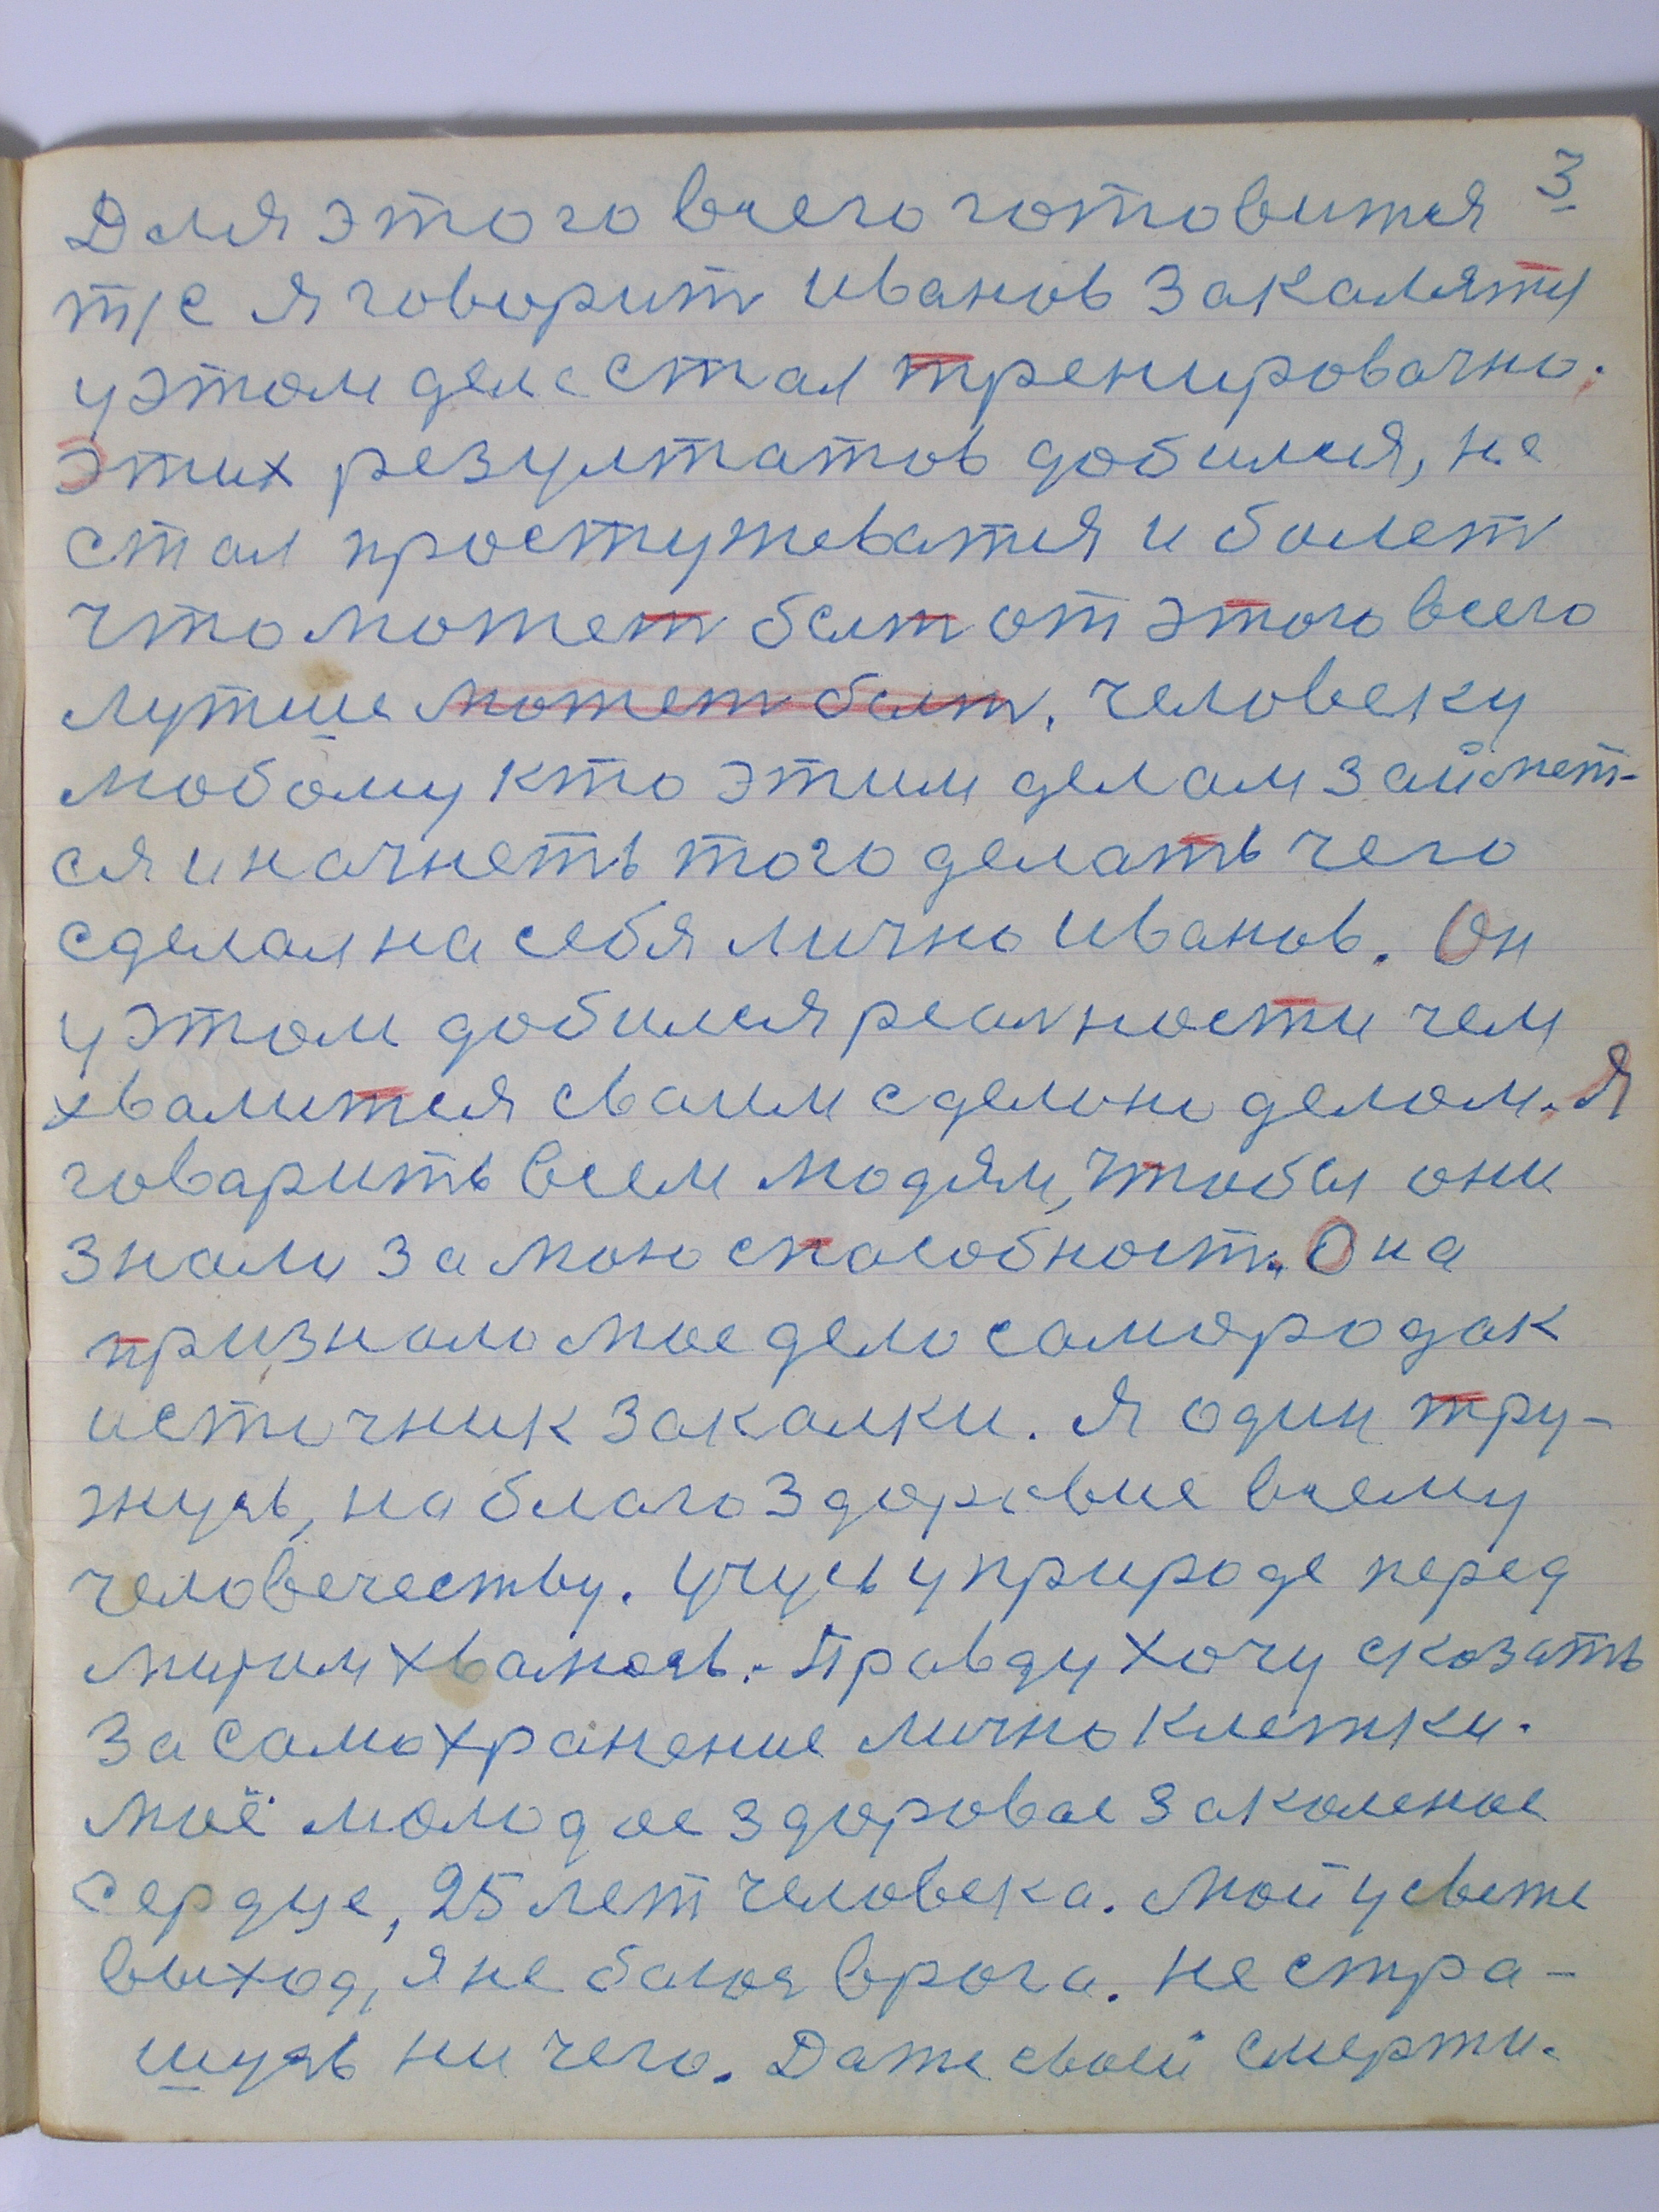 3
Для этого всего готовится
т/с я говорит Иванов закалятy
у этом деле стал тренировачно.
Этих резултатов добился, не
стал простужеватся и болет
что может быт от этого всего
лутше может быт. человеку
любому кто этим делам займет-
ся и начнеть того делать чего
сделал на себя лично Иванов. Он
у этом добился реалности чем
хвалится сваим сделоно делом. Я
говарить всем людям, чтобы они
знали за мою спасобност. Она
признало мое дело самородак
источник закалки. Я один тру-
жусь, на благо здоровие всему
человечеству. Учусь у природе перед
миром хвалюсь. Правду хочу сказать
за самохранение лично клетки.
Моё молодое здоровае закаленое
сердце, 25 лет человека. Мой у свете
выход, я не баюся врага. Не стра-
шусь ни чего. Даже своей смерти.